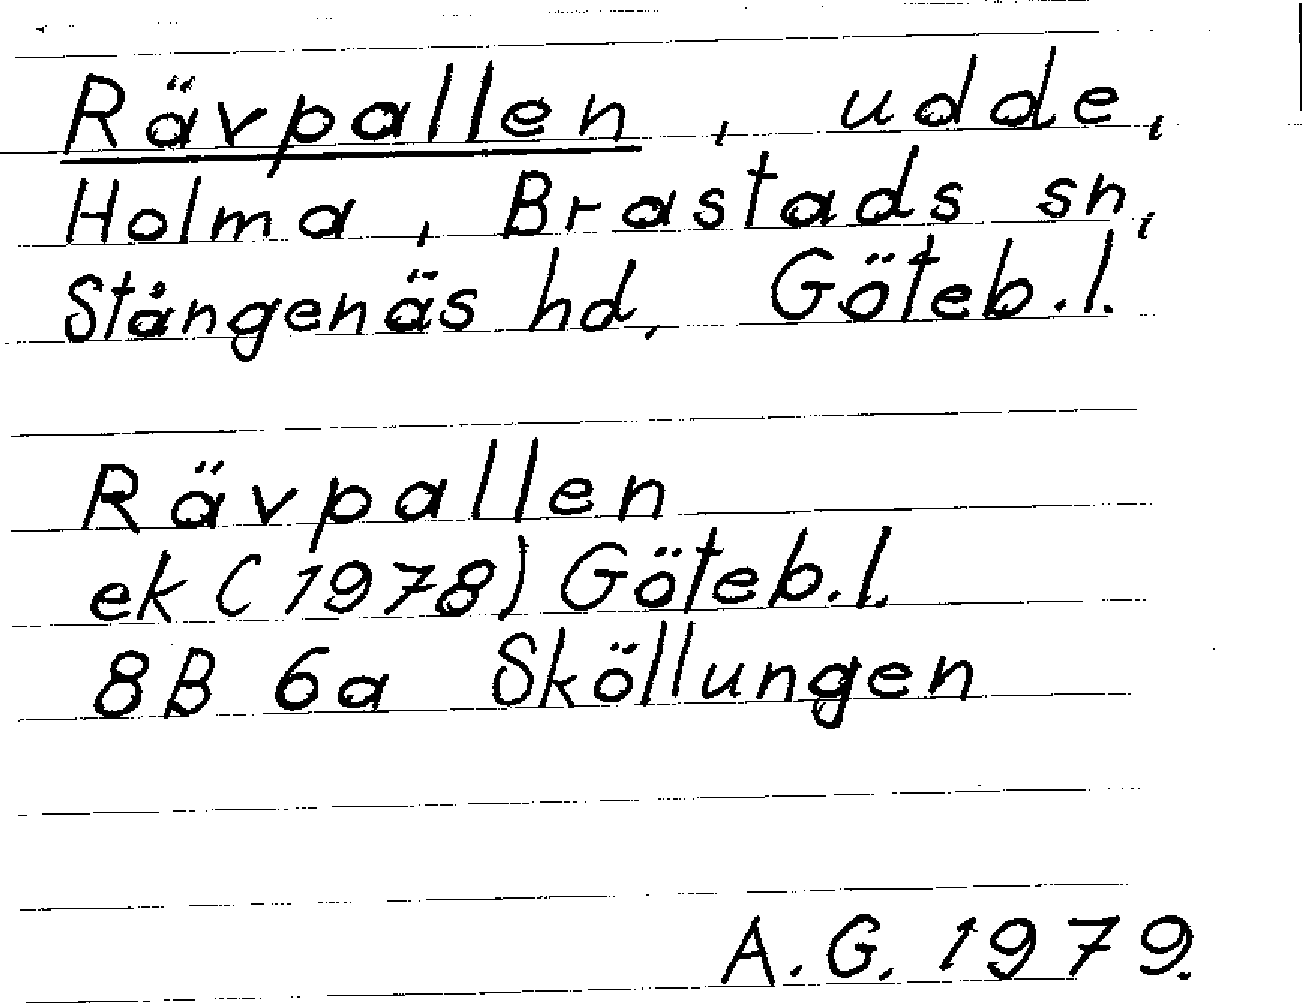 Rävpallen, udde,
Holma, Brastads sn,
Stångenäs hd, Göteb.l.
Rävpallen
ek (1978) Göteb.l.
8B 6a Sköllungen
A.G. 1979.